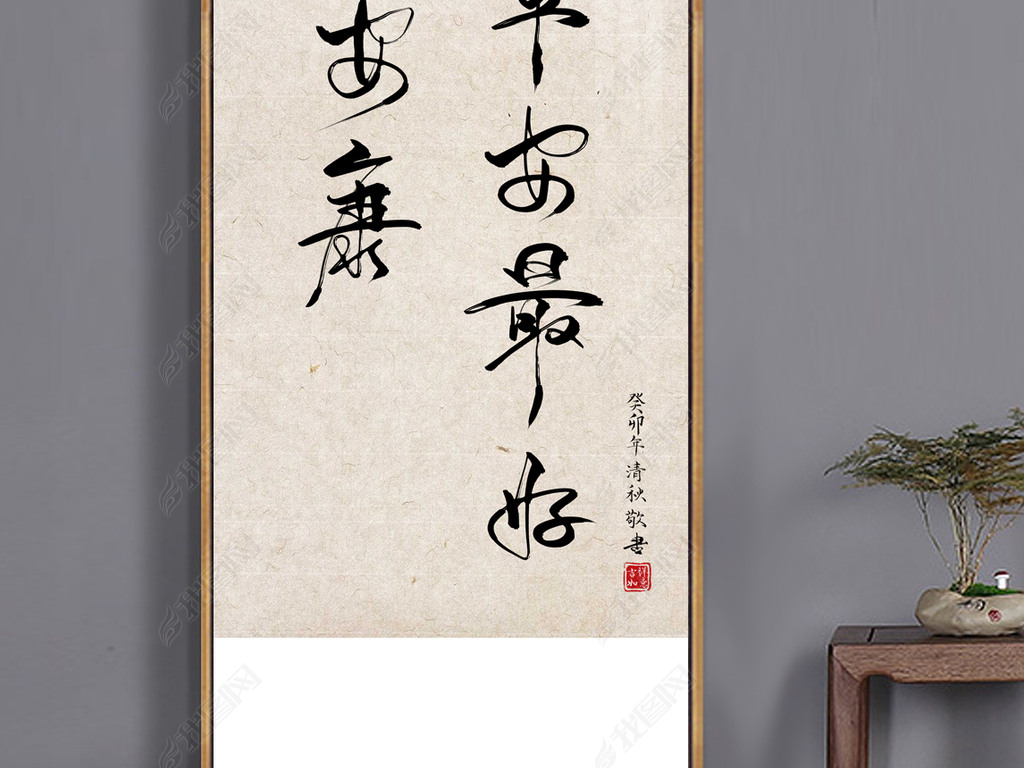 平安最好
安康
癸卯年清秋敬書
吉祥如意
我图网